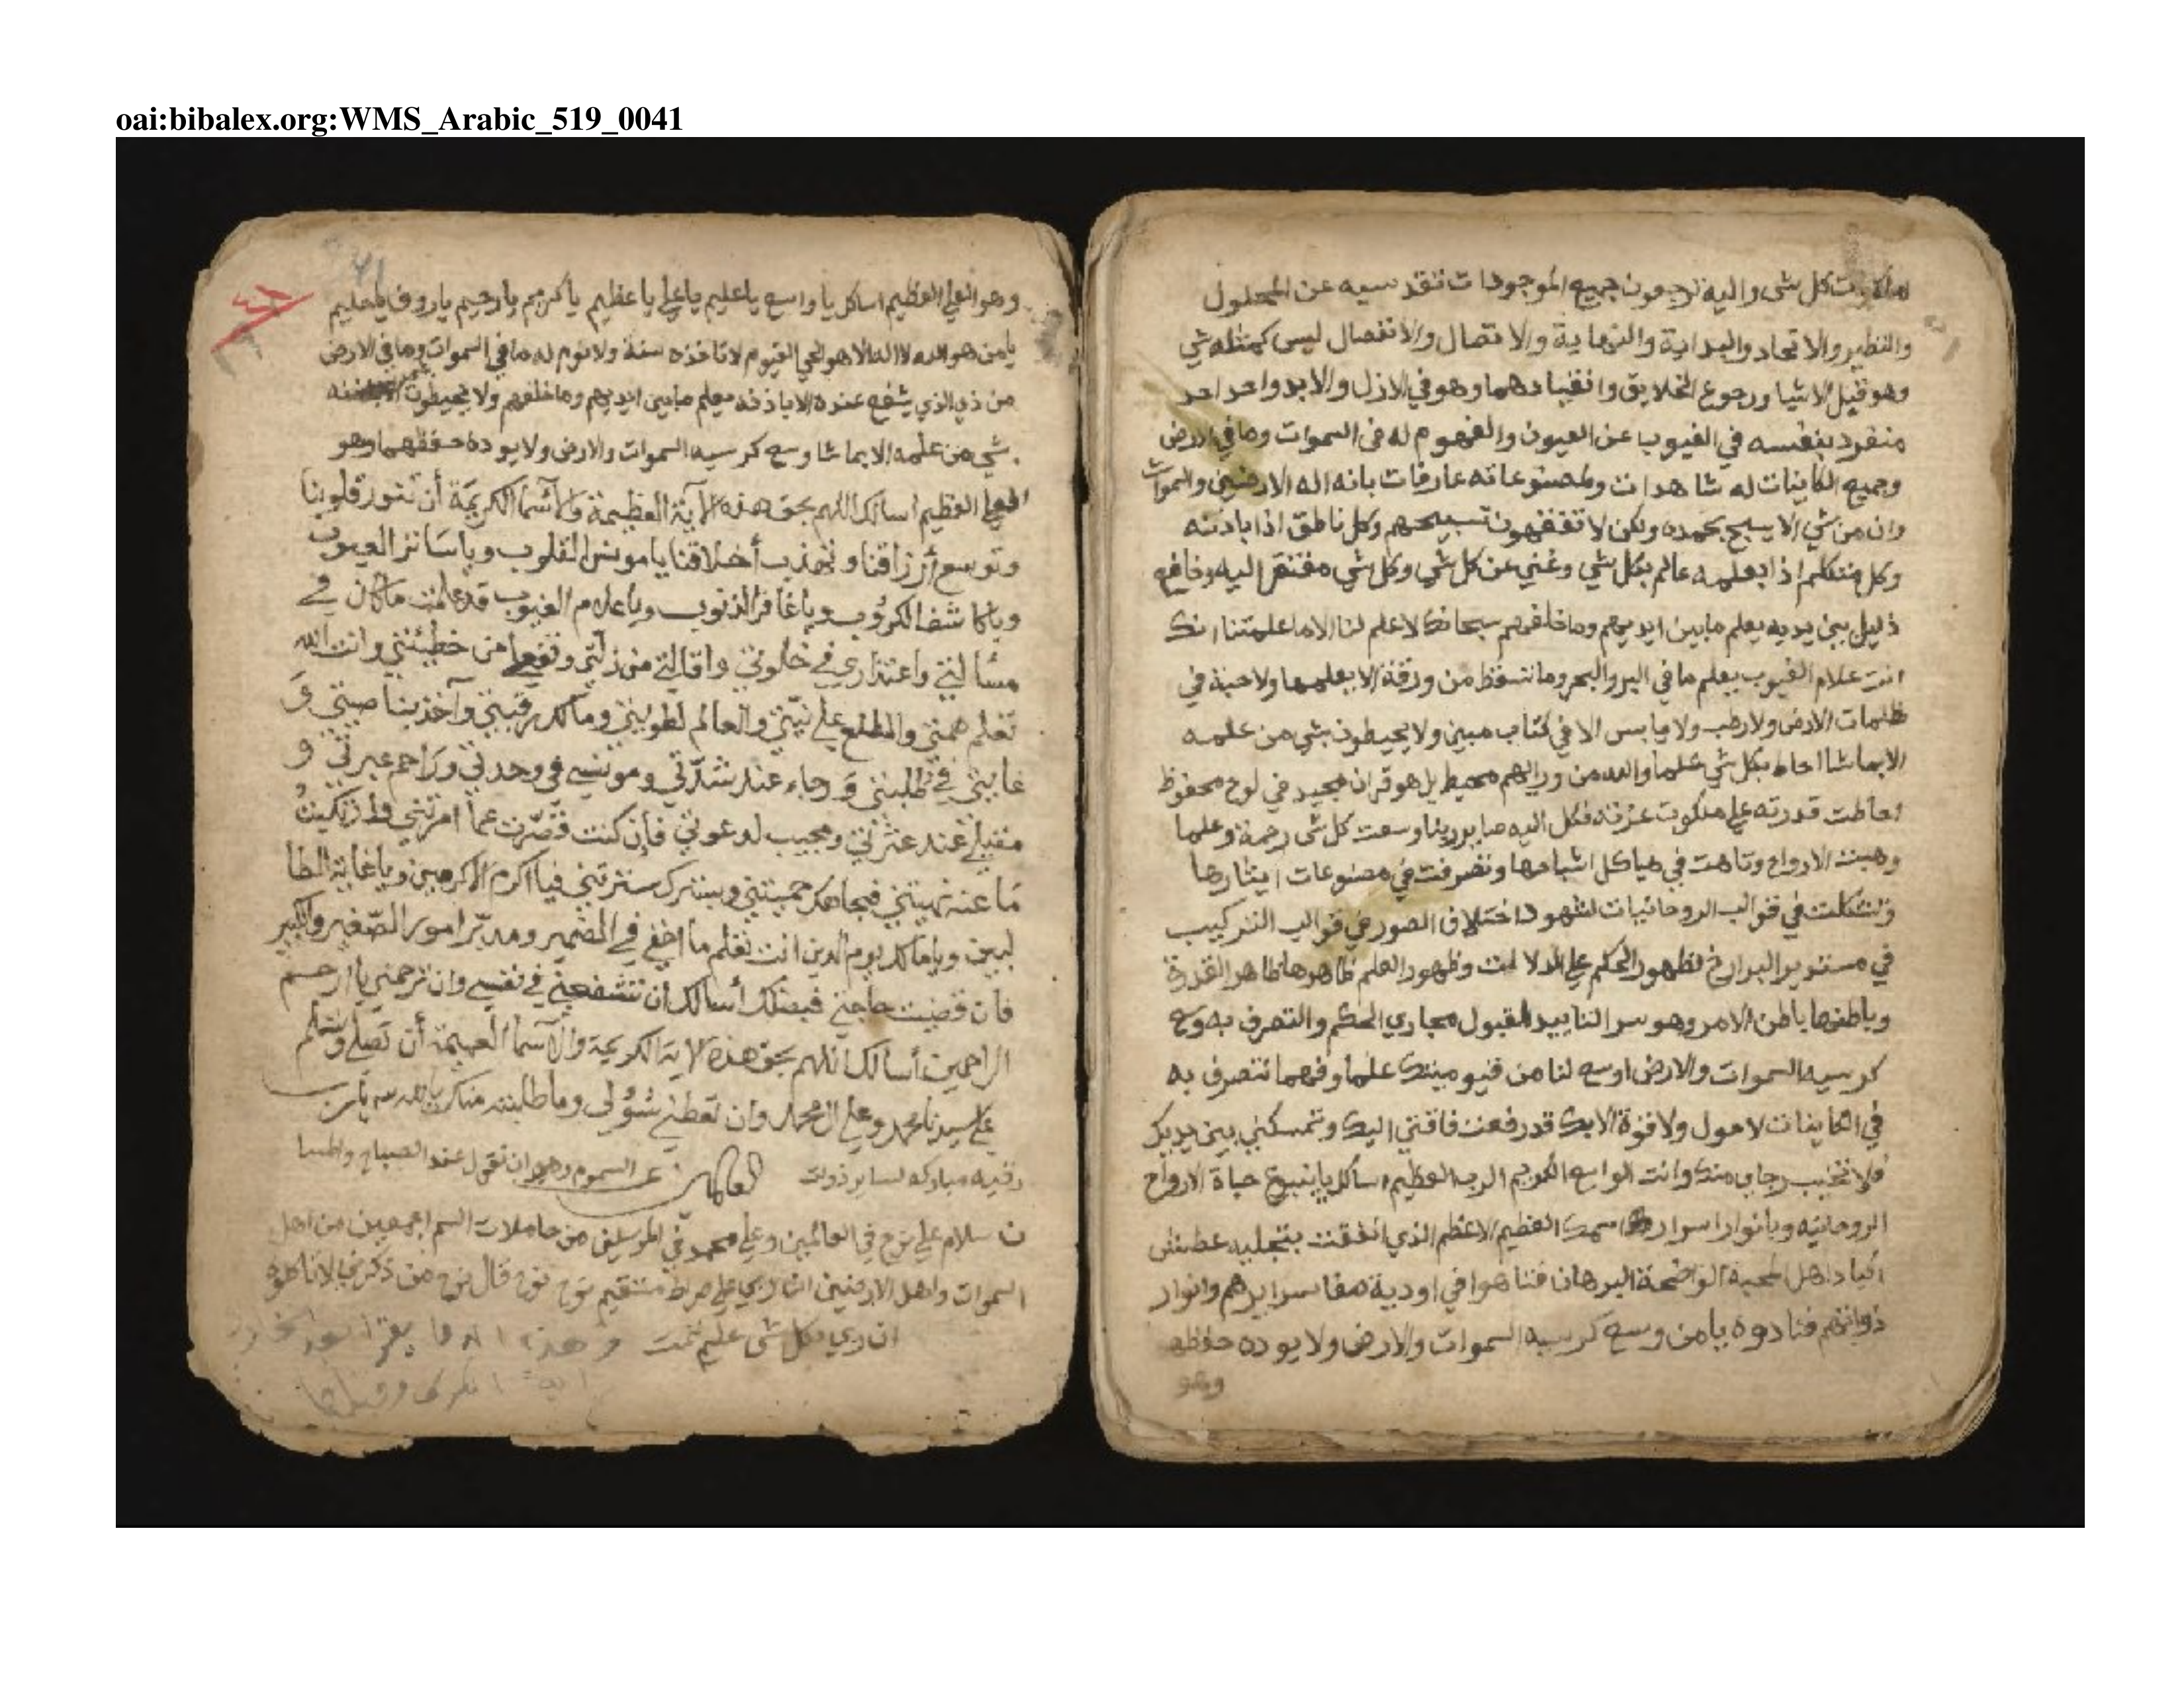 oai:bibalex.org:WMS_Arabic_519_0041
ملكوت كل شى واليه ترجعون جميع الموجودات تقدسيه عن الحلول
والنظير والاتحاد والبداية والنهاية والاتصال والانفصال ليس كمثله شي
وهو قبل الاشيا ورجوع الخلايق وانقيادهما وهو في الازل والابد واحد احد
منفرد بنفسه في الغيوب عن العيون والفهوم له مافي السموات وما في الارض
وجميع الكاينات له شاهدات ومصنوعاته عارفات بانه اله الارضين والسموات
وان من شي الا يسبح بحمده ولكن لا تفقهون تسبيحهم وكل ناطق اذا باذنه
وكل متكلم اذا بعلمه عالم بكل شي وغني عن كل شي وكل شي مفتقر اليه وخاضع
ذليل بين يديه يعلم مابين ايديهم وما خلفهم سبحانك لا علم لنا الا ما علمتنا انك
انت علام الغيوب يعلم ما في البر والبحر وما تسقط من ورقة الا يعلمها ولا حبة في
ظلمات الارض ولا رطب ولا يابس الا في كتاب مبين ولا يحيطون بشي من علمه
الا بما شا احاط بكل شي علما والله من ورايهم محيط بل هو قران مجيد في لوح محفوظ
احاطت قدرته على ملكوت عزته فكل اليه صاير ربنا وسعت كل شى رحمة وعلما
وهبت الارواح وتاهت في هياكل اشباحها وتصرفت في مصنوعات
وتشكلت في قوالب الروحانيات لشهود اختلاف الصور في قوالب التركيب
في مستدير البرازخ لظهور الحكم على الدلالت وظهور العلم ظاهرها ظاهر القدرة
وباطنها باطن الامر وهو سر التاييد لقبول مجاري الحكم والتصرف به وسع
كرسيه السموات والارض اوسع لنا من قيوميتك علما وفهما نتصرف به
في الكاينات لا حول ولا قوة الا بك قد رفعت فاقتي اليك وتمسكني بين يديك
فلا تخيب رجاي منك وانت الواسع الكريم الرب العظيم اسالك بينبوع حياة الارواح
الروحانيه وبانوار اسرار اسمك العظيم الاعظم الذي انفقت بتجليه عطش
اكباد اهل المحبة الواضحة البرهان فتاهوا في اودية صفا سرايرهم وانوار
ذواتهم فنادوه يا من وسع كرسيه السموات والارض ولا يوده حفظهما
وهو
وهو العلي العظيم اسالك يا واسع يا عليم يا علي يا عظيم يا كريم يا رحيم يا روف يا حليم
يا من هو الله لا اله الا هو الحي القيوم لا تاخذه سنة ولا نوم له ما في السموات وما في الارض
من ذي الذي يشفع عنده الا باذنه يعلم مابين ايديهم وما خلفهم ولا يحيطون
بشي من علمه الا بما شا وسع كرسيه السموات والارض ولا يوده حفظهما وهو
العلي العظيم اسالك اللهم بحق هذه الآية العظيمة والآسما الكريمة أن تنور قلوبنا
وتوسع أرزاقنا وتهذب أخلاقنا يا مونس القلوب ويا ساتر العيوب
ويا كاشف الكروب ويا غافر الذنوب ويا علام الغيوب قد علمت ما كان في
مسألتي واعتذاري في خلوتي واقالتي من زلتي وتنصلي من خطيئتي وانت الله
تعلم همتي والمطلع على نيتي والعالم لطويتي ومالك رقبتي وآخذ بناصيتي و
غايتي في طلبتي ورجاء عند شدتي ومونسي في وحدتي وراحم عبرتي و
مقيل عند عثرتي ومجيب لدعوتي فإن كنت قصرت عما امرتني وارتكبت
ما عنه نهيتني فبجاهك حميتني وبسترك سترتني فيا اكرم الاكرمين ويا غاية الطا
لبين ويا مالك يوم الدين انت تعلم ما اخفي في الضمير ومدبر امور الصغير والكبير
فان قضيت حاجتي فبفضلك أسالك أن تشفعني في نفسي وان ترحمني يا ارحم
الراحمين أسالك اللهم بحق هذه الاية الكريمة والآسما العظيمة أن تصلي وتسلم
على سيدنا محمد وعلى ال محمد وان تعطني سؤلي وما طلبته منك يا الله يا رب
العالمين
رقيه مباركه لساير ذوات السموم وهي ان تقول عند الصباح والمسا
سلام على نوح في العالمين وعلى محمد في المرسلين من حاملات السم اجمعين من اهل
السموات واهل الارضين ان ربي على صراط مستقيم نوح نوح قال نوح من ذكرني لا تاكلوه
ان ربي بكل شى عليم تمت